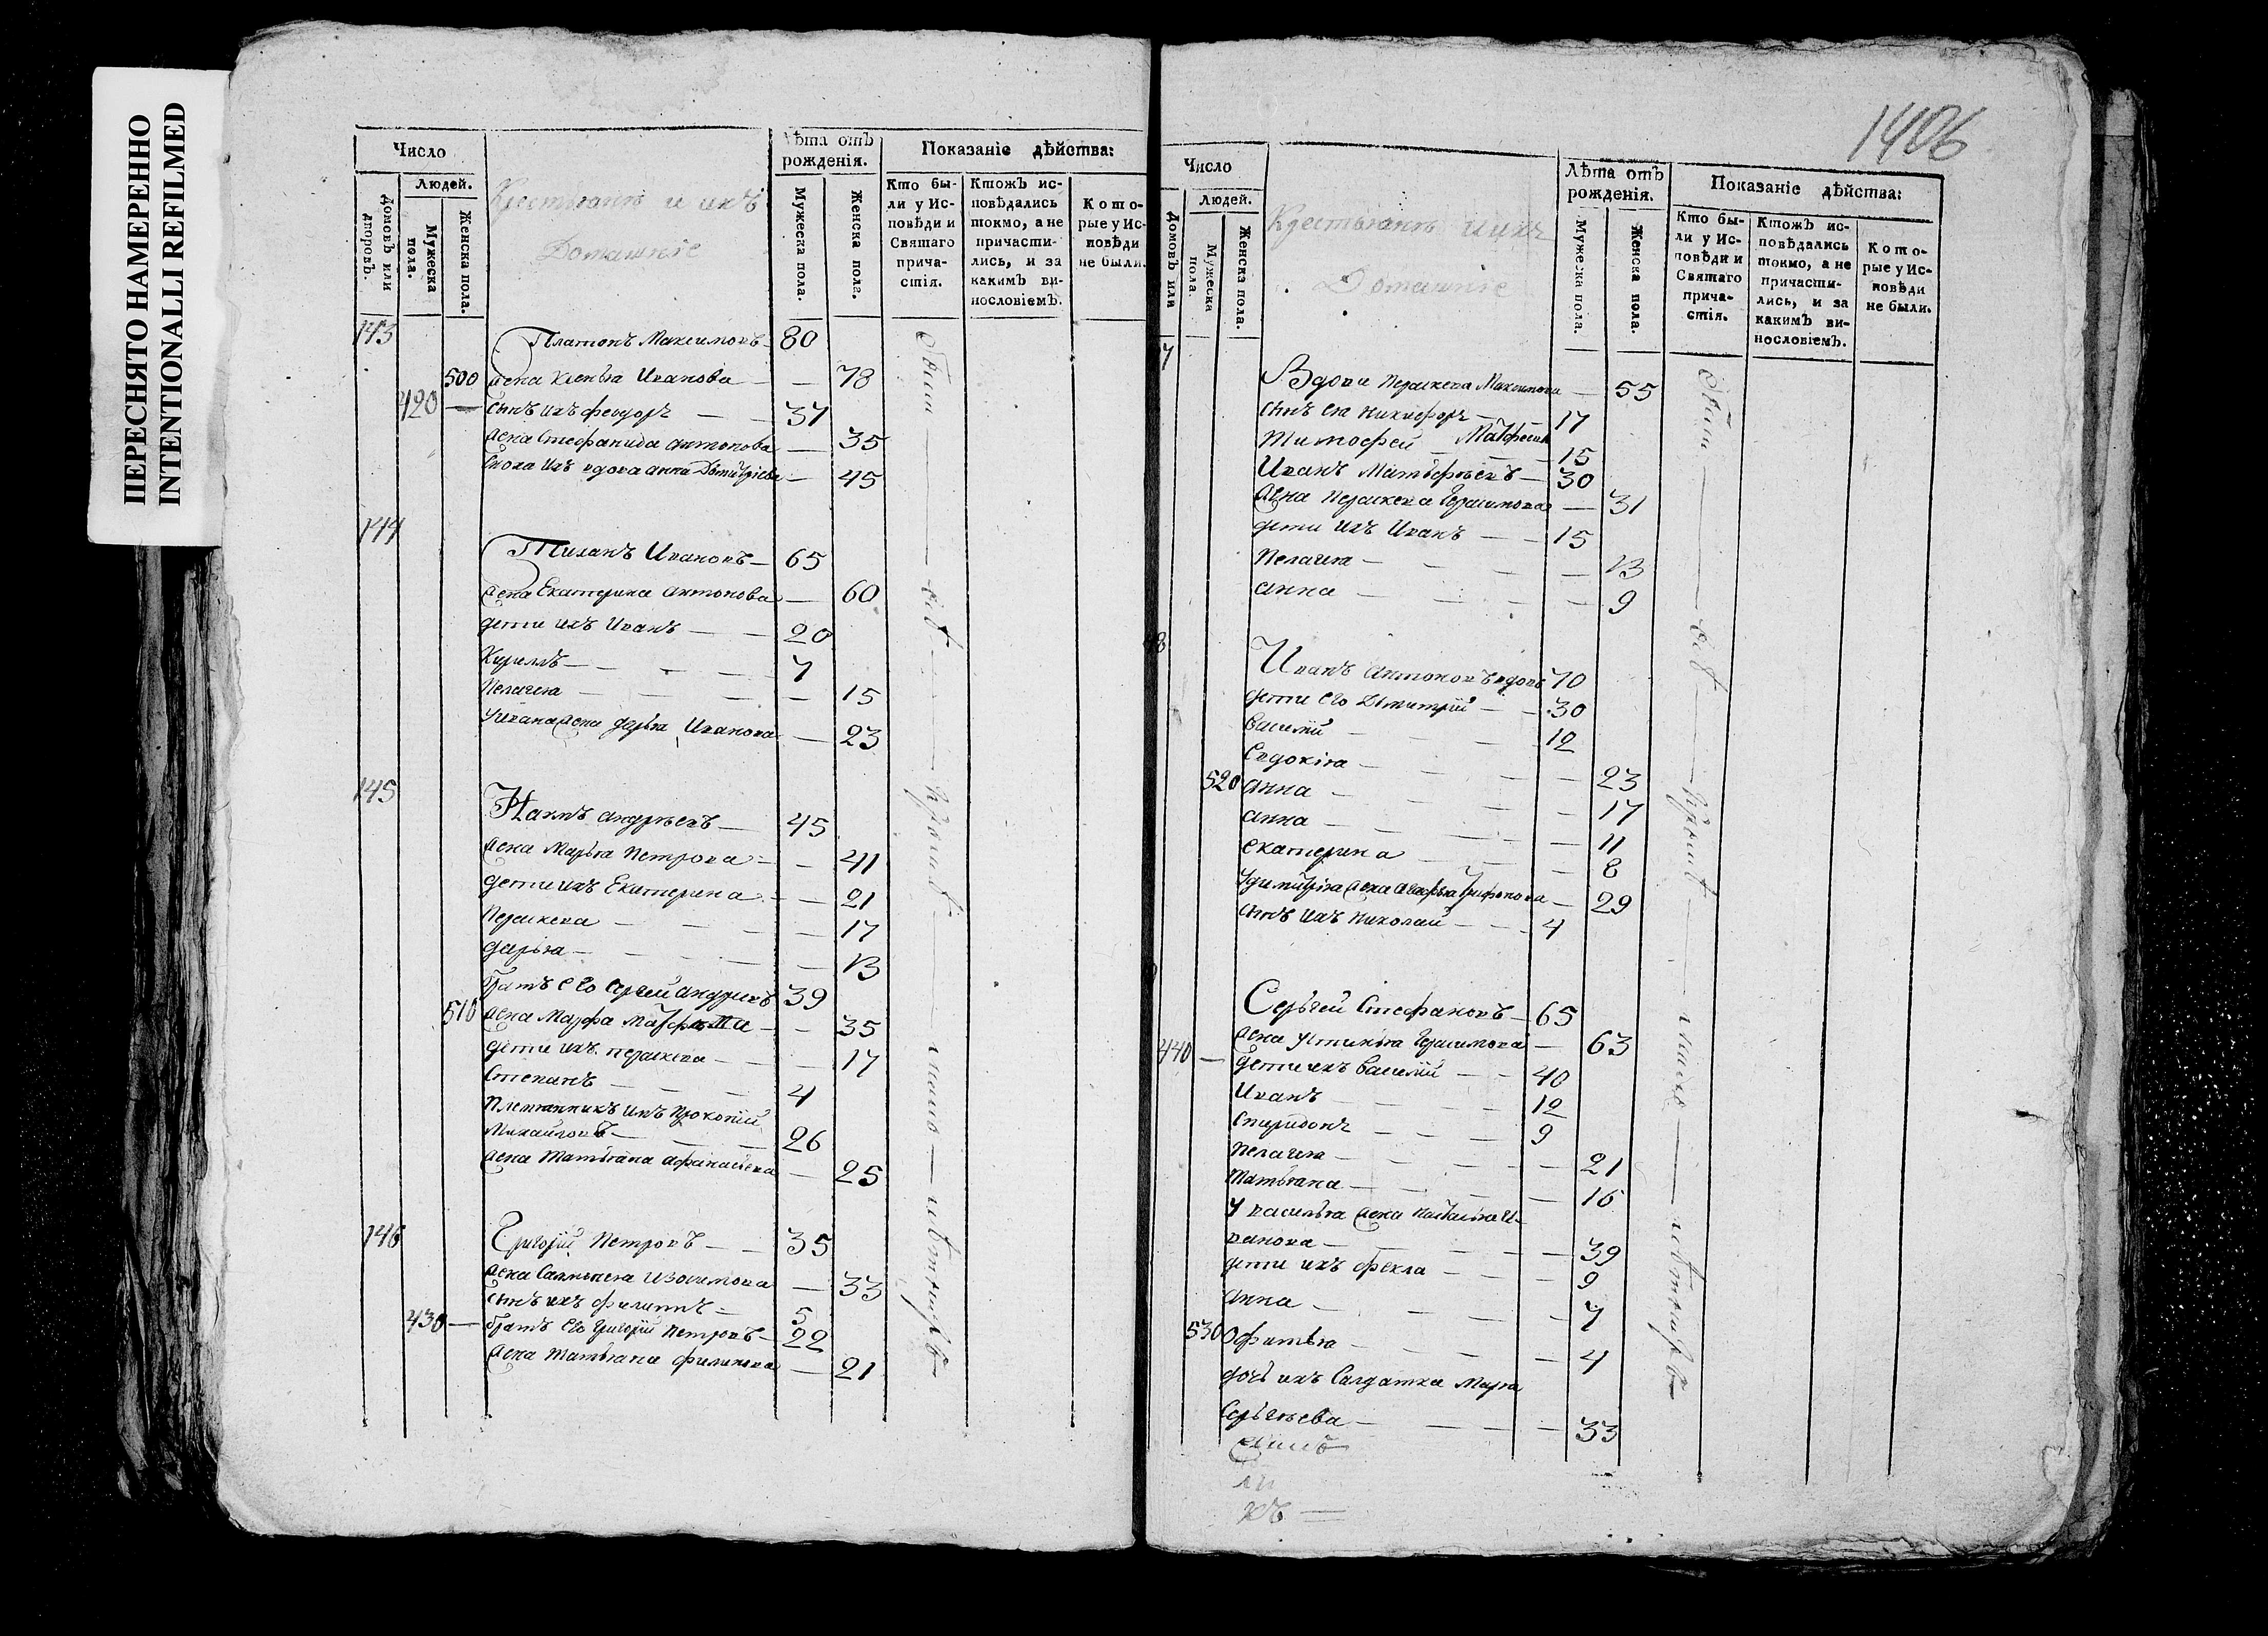 ПЕРЕСНЯТО НАМЕРЕННО
INTENTIONALLI REFILMED
Число
Людей.
Домовъ или дворовъ.
Мужеска пола.
Женска пола.
Крестьянѣ и ихъ
Домашніе
Лѣта отъ рожденія.
Мужеска пола.
Женска пола.
Показаніе дѣйства:
Кто были у Исповѣди и Святаго причастія.
Ктожъ исповѣдались токмо, а не причастились, и за какимъ винословіемъ.
Которые у Исповѣди не были.
143
Платонъ Максимовъ — 80
500 жена Ксенья Иванова — — 78
420 — сынъ ихъ феодоръ — — 37
жена Стефанида антонова — 35
Сноха ихъ вдова анна Дмитріева — 45
144
Тиханъ Ивановъ — 65
жена Екатерина антонова — 60
дети ихъ Иванъ — — 20
Кириллъ — — — — 7
Пелагия — — — — 15
У ивана жена дарья Иванова — 23
145
Наумъ андреевъ — 45
жена Марья Петрова — — 41
дети ихъ Екатерина — — 21
Параскева — — — — 17
дарья — — — — 13
братъ его сергей андреевъ 39
510 жена Марфа Матфеева — — 35
дети ихъ параскева — — 17
Степанъ — — — 4
Племянникъ ихъ Прокопій
Михайловъ — — — 26
жена Татьяна афанасьева — 25
146
Григорій Петровъ — — 35
жена Изосимова — 33
сынъ ихъ филиппъ — 5
430 — братъ его григорій петровъ — 22
жена Татьяна филипова — 21
были
1406
Число
Людей.
Домовъ или
Мужеска пола.
Женска пола.
Крестьянѣ и ихъ
Домашніе
Лѣта отъ рожденія.
Мужеска пола.
Женска пола.
Показаніе дѣйства:
Кто были у Исповѣди и Святаго причастія.
Ктожъ исповѣдались токмо, а не причастились, и за какимъ винословіемъ.
Которые у Исповѣди не были.
7
Вдова параскева Максимова — 55
сынъ ея никифоръ — 17
тимофей Матфеевы — 15
Иванъ Матвеевъ — 30
жена параскева Герасимова — 31
дети ихъ Иванъ — — 15
Пелагия — — — — 13
анна — — — — 9
48
Иванъ антоновъ вдовъ 70
дети его Дмитрій — — 30
Василій — — — 12
Евдокія — — — — 23
520 анна — — — — 17
анна — — — — 11
екатерина — — — 8
У димитрія жена агафья Трифонова — 29
сынъ ихъ николай — — — 4
Сергей Стефановъ — 65
жена устинья Герасимова — 63
440 — дети ихъ василій — — 40
Иванъ — — — — 12
спиридонъ — — — 9
пелагия — — — — 21
татьяна — — — — 16
У василья жена наталья И-
ванова — — — — 39
дети ихъ фекла — — — 9
анна — — — — 7
530 Офимья — — — — 4
дочь ихъ салдатка Марья
Сергеева — — — — 33
были